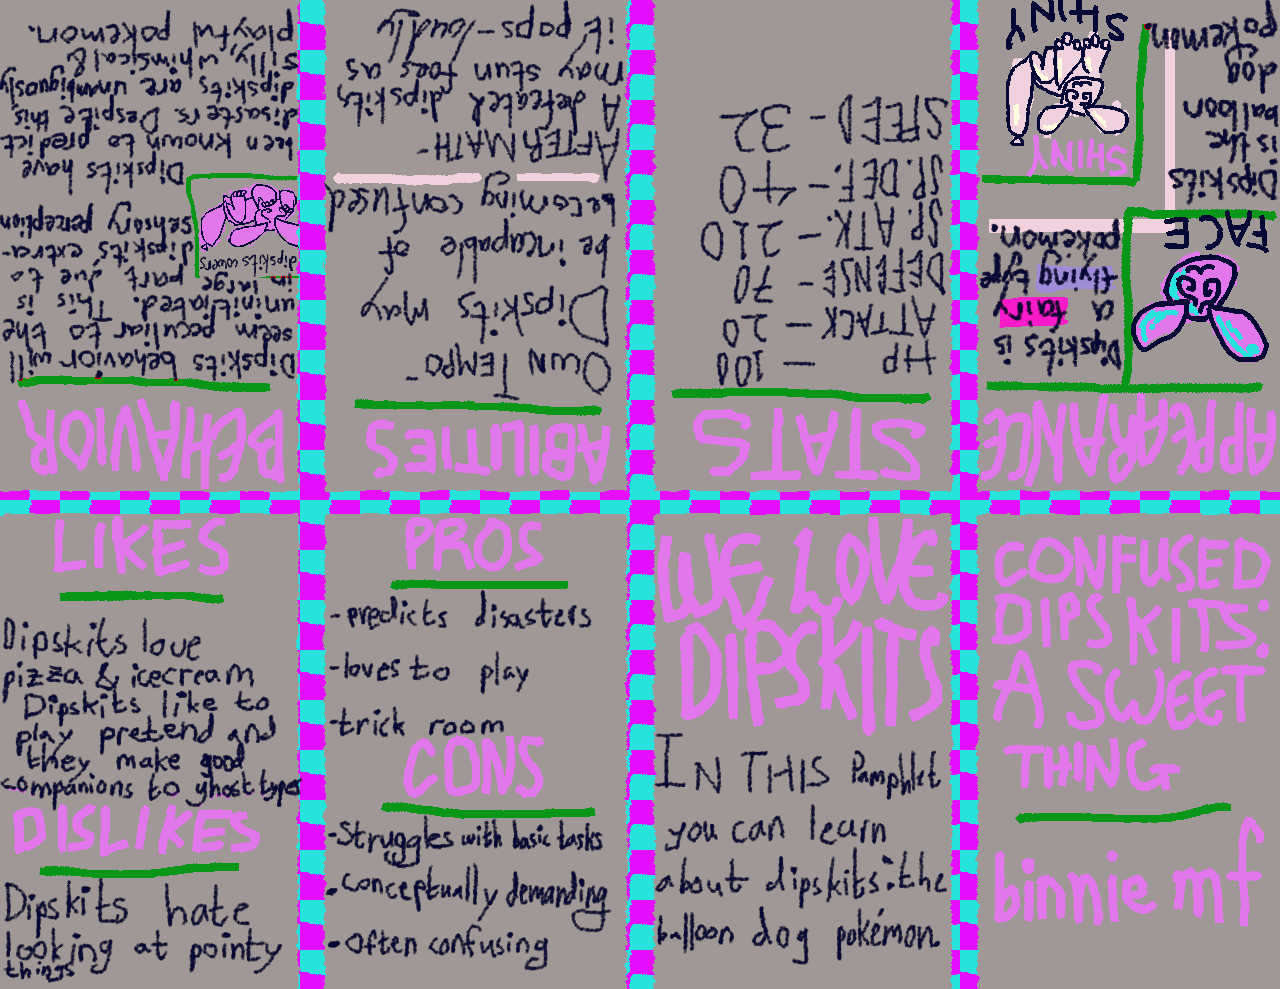 APPEARANCE
Dipskits is
a fairy
flying type
pokemon.
FACE
Dipskits
is the
balloon
dog
of
pokemon.
SHINY
SHINY
STATS
HP — 100
ATTACK — 20
DEFENSE - 70
SP. ATK. - 210
SP. DEF. - 40
SPEED - 32
ABILITIES
OWN TEMPO -
Dipskits may
be incapable of
becoming confused
AFTERMATH-
A defeated dipskits
may stun foes as
it pops - loudly
BEHAVIOR
Dipskits behavior will
seem peculiar to the
uninitiated. This is
in large part due to
dipskits' extra-
sensory perception
dipskits cowers
Dipskits have
been known to predict
disasters. Despite this,
dipskits are unambiguously
silly, whimsical &
playful pokemon.
LIKES
Dipskits love
pizza & icecream
Dipskits like to
play pretend and
they make good
companions to ghost types
DISLIKES
Dipskits hate
looking at pointy
things
PROS
-predicts disasters
-loves to play
-trick room
CONS
-Struggles with basic tasks
-conceptually demanding
-often confusing
WE LOVE
DIPSKITS
IN THIS Pamphlet
you can learn
about dipskits: the
balloon dog pokémon.
CONFUSED
DIPSKITS:
A SWEET
THING
binnie mf